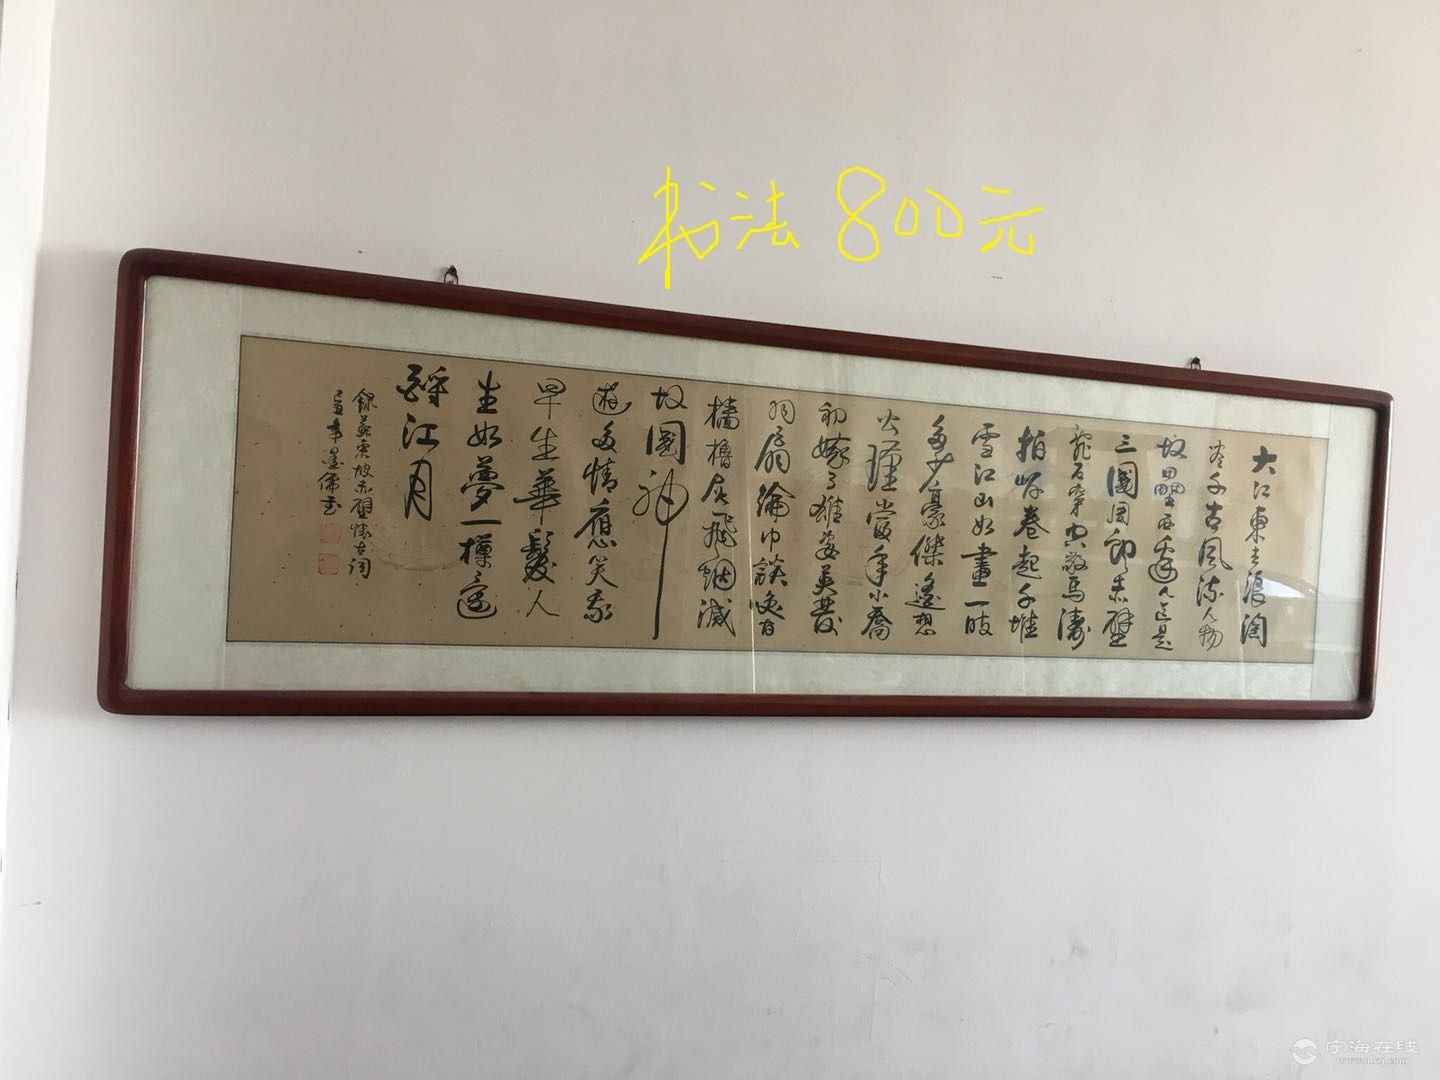 书法 800元
大江東去浪淘
盡千古風流人物
故壘西邊人道是
三國周郎赤壁
亂石穿空驚濤
拍岸卷起千堆
雪江山如畫一時
多少豪傑遙想
公瑾當年小喬
初嫁了雄姿英發
羽扇綸巾談笑間
檣櫓灰飛烟滅
故國神
遊多情應笑我
早生華髮人
生如夢一樽還
酹江月
錄蘇東坡赤壁懷古詞
年墨儒书
宁海在线